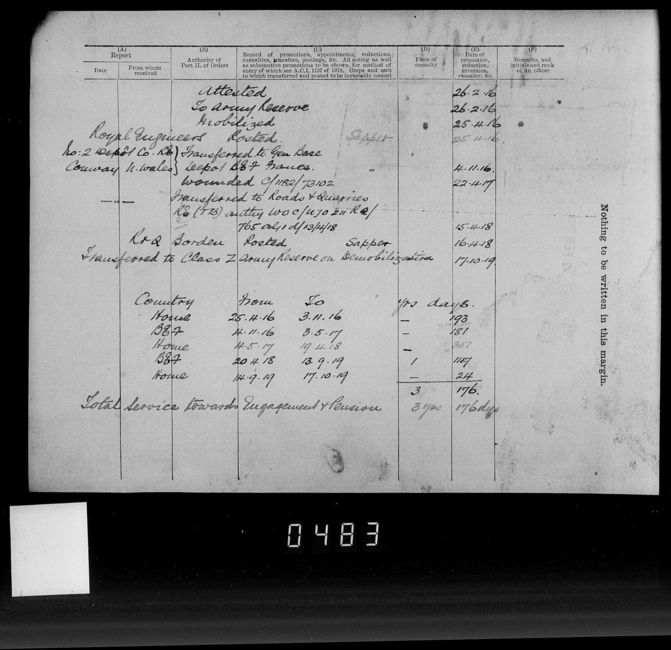 (A)
Report
Date
From whom received
(B)
Authority of
Part II. of Orders
(C)
Record of promotions, appointments, reductions,
casualties, transfers, postings, &c. All acting as well
as substantive promotions to be shown, for method of
entry of which see A.C.I. 1107 of 1918, Corps and unit
to which transferred and posted to be invariably named
(D)
Place of
casualty
(E)
Date of
promotion,
reduction,
reversion,
casualty, &c.
(F)
Remarks, and
initials and rank
of an officer
Attested 26.2.16
To Army Reserve 26.2.16
Mobilized 25.4.16
Royal Engineers Posted Sapper 25.4.16
No: 2 Depôt Co. RE } Transferred to Gen Base
Conway N. Wales } Depot BEF France. " 4.11.16.
Wounded C/1182/73102 22.4.17
Transferred to Roads & Quarries
RE (TB) 15.4.18
Borden Posted Sapper 16.4.18
Transferred to Class Z Army Reserve on Demobilization 17.10.19
Country From To Yrs days.
Home 25.4.16 3.11.16 — 193
BEF 4.11.16 3.5.17 — 181
Home 4.5.17 19.4.18 — 351
BEF 20.4.18 13.9.19 1 147
Home 14.9.19 17.10.19 — 24
3 176.
Total Service towards Engagement & Pension 3 yrs 176 dys
Nothing to be written in this margin.
0483